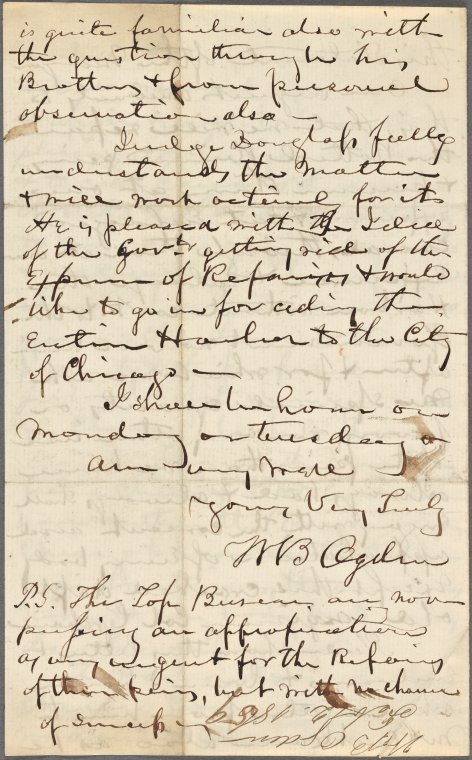 is quite familiar also with
the question through his
Brother & from personal
observation also —
Judge Douglass fully
understands the matter
& will work actively for it
He is pleased with the Idea
of the Govt. getting rid of the
Expense of Repairing & would
like to go in for ceding the
Entire Harbor to the City
of Chicago —
I shall be home on
Monday or Tuesday
am very well
yours Very Truly
W B Ogden
P.S. The Top. Bureau are now
pressing an appropriation
as very urgent for the Repairs
of their piers, but with no chance
of success —
W B Ogden